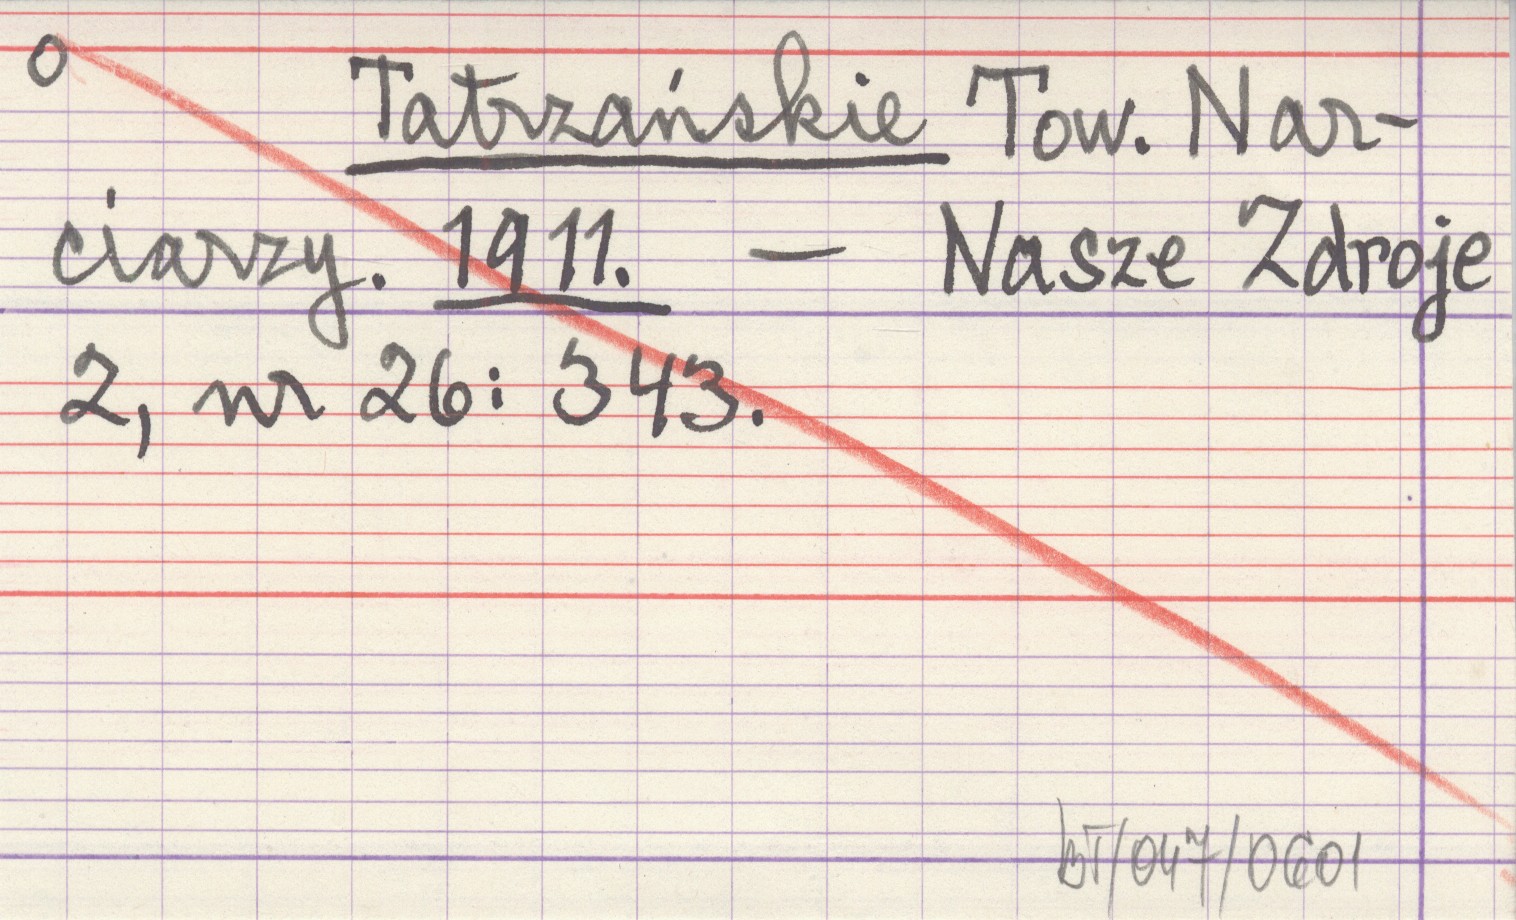 o Tatrzańskie Tow. Nar-
ciarzy. 1911. — Nasze Zdroje
2, nr 26: 343.
bT/047/0601